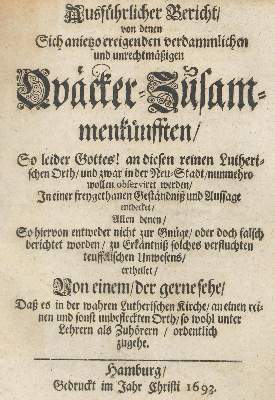 Ausführlicher Bericht/
von denen
Sich anietzo ereigenden verdammlichen
und unrechtmäßigen
Qväcker-Zusam-
menkünfften/
So leider Gottes! an diesen reinen Lutheri-
schen Orth/ und zwar in der Neu-Stadt/ nunmehro
wollen observiret werden/
In einer freygethanen Geständniß und Aussage
entdecket/
Allen denen/
So hiervon entweder nicht zur Gnüge/ oder doch falsch
berichtet worden/ zu Erkäntniß solches verfluchten
teuffälischen Unwesens/
ertheilet/
Von einem/ der gerne sehe/
Daß es in der wahren Lutherischen Kirche/ an einen rei-
nen und sonst unbefleckten Orth/ so wohl unter
Lehrern als Zuhörern/ ordentlich
zugehe.
Hamburg/
Gedruckt im Jahr Christi 1693.